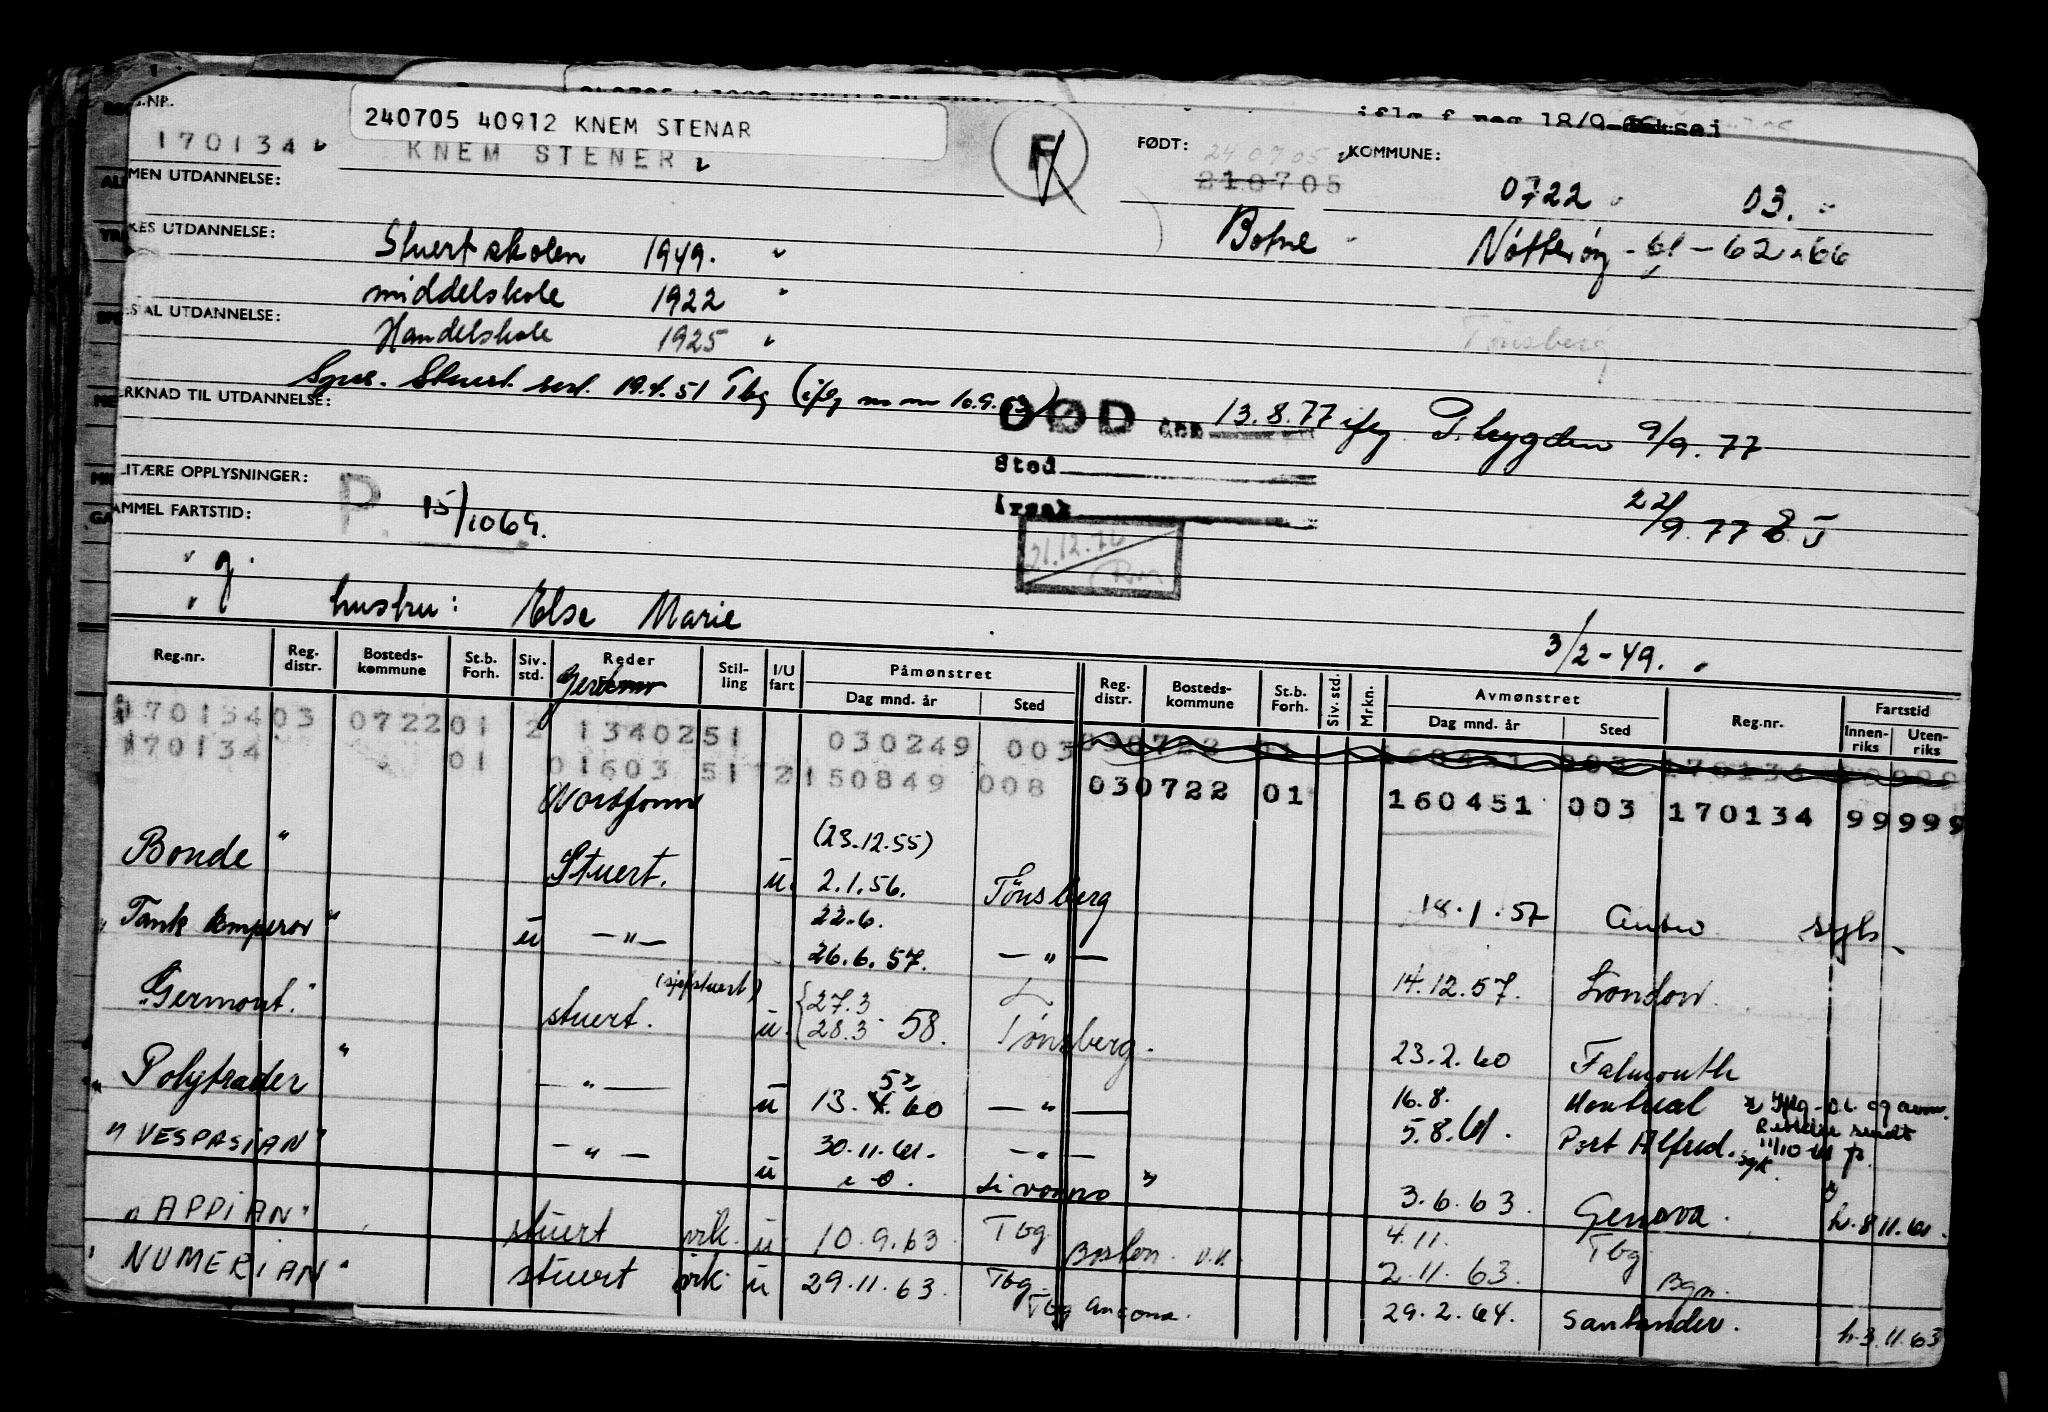 iflg f. reg 18/9
REG.NR.
240705 40912 KNEM STENAR
170134
KNEM STENER
F
FØDT:
240705
210705
KOMMUNE:
0722 03.
MEN UTDANNELSE:
Botne
Nøtterøy - 61 - 62 - 66
KES UTDANNELSE:
Stuertskolen 1949. "
middelskole 1922 "
AL UTDANNELSE:
Handelskole 1925
Tønsberg
Stuert sert. 19.4.51 Tbg
ERKNAD TIL UTDANNELSE:
DØD den 13.8.77 iflg. T.trygden 9/9.77
Sted
Årsak
ITÆRE OPPLYSNINGER:
P. 15/1069.
22/9.77
AMMEL FARTSTID:
21.12.76
" g.
hustru: Else Marie
3/2-49.
Reg.nr. Reg. distr. Bosteds- kommune St.b. Forh. Siv. std. Reder Stil- ling I/U fart Påmønstret Dag mnd. år Sted Reg. distr. Bosteds- kommune St.b. Forh. Siv. std. Mrkn. Avmønstret Dag mnd. år Sted Reg.nr. Fartstid Innen- riks Uten- riks
170134 03 0722 01 2 13402 51 030249 003 030722 01 160451 003 170134
170134 01 01603 51 2 150849 008 030722 01 160451 003 170134 99 999
Bonde " Stuert. u. (23.12.55) 2.1.56. Tönsberg 18.1.57
"Tank Emperor" u —"— 22.6. 26.6.57. —"— 14.12.57. London.
"Germont." stuert. (sjefstuert) u. 27.3 28.3 58. Tønsberg. 23.2.60 Falmouth
"Polytrader" —"— u 13. 60 —"— 16.8. 5.8.61. Montreal Port Alfred. syk.
"VESPASIAN" —"— u 30.11.61. —"— Livorno 3.6.63. Genova. h. 8.11.61.
"APPIAN" stuert vrk. u 10.9.63. Tbg Boston 4.11. 2.11.63. Tbg Bgn.
"NUMERIAN" stuert vrk. u 29.11.63. Tbg. Tbg Ancona. 29.2.64. Santander. h. 3.11.63